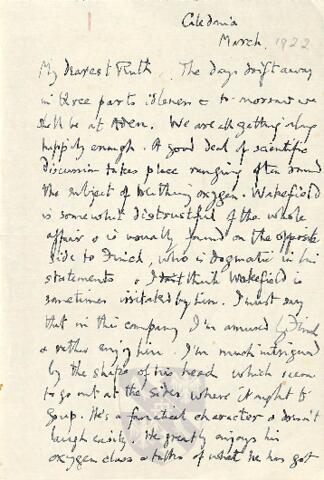 Caledonia
March, 1922
My dearest Ruth. The days drift away
in three parts idleness & to-morrow we
shall be at Aden. We are all getting along
happily enough. A good deal of scientific
discussion takes place ranging often round
the subject of breathing oxygen. Wakefield
is somewhat distrustful of the whole
affair & is usually found on the opposite
side to Finch, who is dogmatic in his
statements & I think Wakefield is
sometimes irritated by him. I must say
that in this company I'm amused by Finch
& rather enjoy him. I'm much intrigued
by the shape of his head which seems
to go out at the sides where it ought to
go up. He's a fanatical character & doesn't
laugh easily. He greatly enjoys his
oxygen class & talks of what he has got